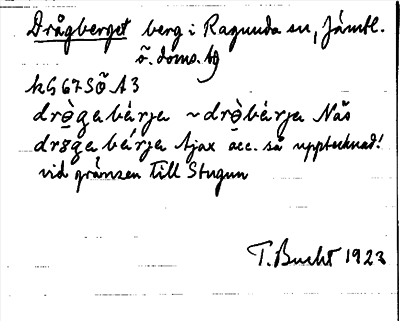 Drågberget berg i Ragunda sn, Jämtl.
ö. doms. tg
kG 67 SÖ A3
drò̱gabárja ~ drò̱bárja Näs
dr8gabárja Ajax acc. så upptecknad!
vid gränsen till Stugun
T. Bucht 1923